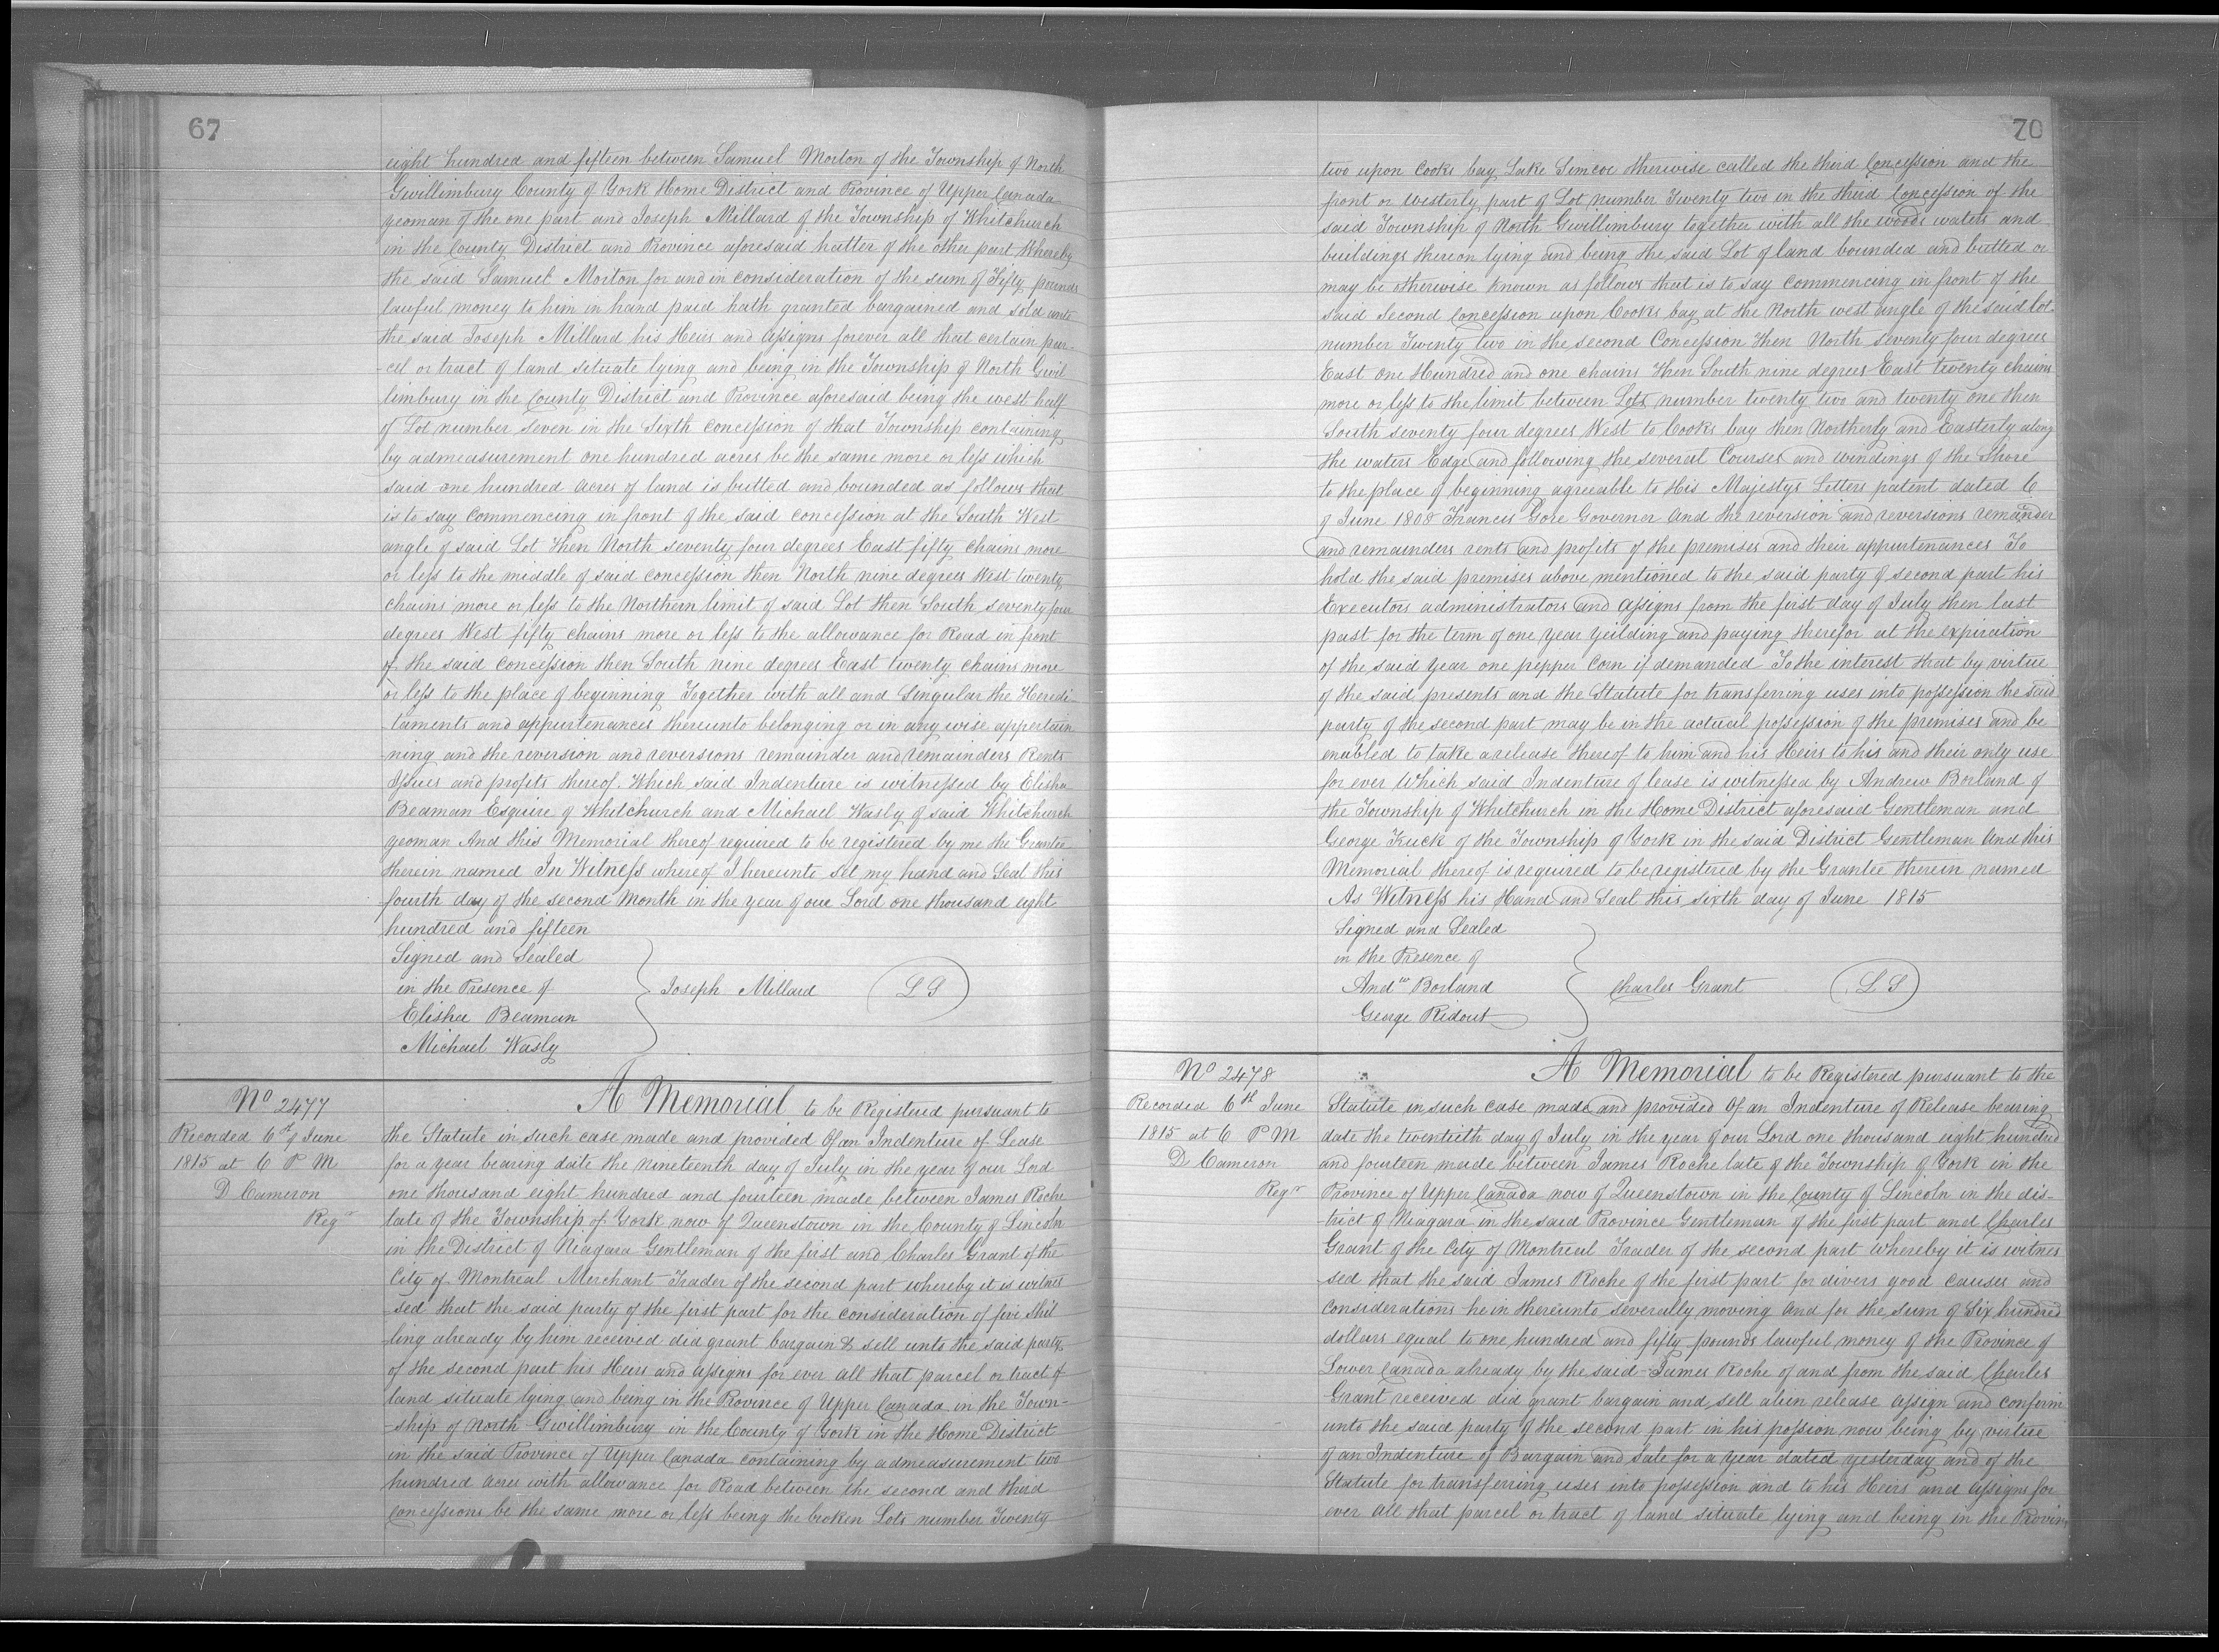 67
eight hundred and fifteen between Samuel Morton of the Township of North
Gwillimbury County of York Home District and Province of Upper Canada
yeoman of the one part and Joseph Millard of the Township of Whitchurch
in the County District and Province aforesaid hatter of the other part Whereby
the said Samuel Morton for and in consideration of the sum of Fifty pounds
lawful money to him in hand paid hath granted bargained and sold unto
the said Joseph Millard his Heirs and Assigns forever all that certain par-
-cel or tract of land situate lying and being in the Township of North Gwil
limbury in the County District and Province aforesaid being the west half
of Lot number Seven in the Sixth concession of that Township containing
by admeasurement one hundred acres be the same more or less which
said one hundred acres of land is butted and bounded as follows that
is to say Commencing in front of the said concession at the South West
angle of said Lot then North seventy four degrees East fifty chains more
or less to the middle of said concession then North nine degrees West twenty
chains more or less to the Northern limit of said Lot then South seventy four
degrees West fifty chains more or less to the allowance for Road in front
of the said concession then South nine degrees East twenty chains more
or less to the place of beginning Together with all and Singular the Heredi-
-taments and appurtenances thereunto belonging or in any wise appertain
ning and the reversion and reversions remainder and remainders Rents
Issues and profits thereof. Which said Indenture is witnessed by Elisha
Beaman Esquire of Whitchurch and Michael Wasly of said Whitchurch
yeoman And this Memorial thereof required to be registered by me the Grantee
therein named In Witness whereof I hereunto set my hand and Seal this
fourth day of the second Month in the year of our Lord one thousand eight
hundred and fifteen
Signed and Sealed
in the Presence of
Joseph Millard L S
Elisha Beaman
Michael Wasly
No 2477
Recorded 6th of June
1815 at 6 P M
D Cameron
Regr
A Memorial to be Registered pursuant to
the Statute in such case made and provided Of an Indenture of Lease
for a year bearing date the nineteenth day of July in the year of our Lord
one thousand eight hundred and fourteen made between James Roche
late of the Township of York now of Queenstown in the County of Lincoln
in the District of Niagara Gentleman of the first and Charles Grant of the
City of Montreal Merchant Trader of the second part whereby it is witnes
sed that the said party of the first part for the consideration of five shil
ling already by him received did grant bargain & sell unto the said party
of the second part his Heirs and Assigns for ever all that parcel or tract of
land situate lying and being in the Province of Upper Canada in the Town-
-ship of North Gwillimbury in the County of York in the Home District
in the said Province of Upper Canada containing by admeasurement two
hundred acres with allowance for Road between the second and third
concessions be the same more or less being the broken Lots number Twenty
70
two upon Cooks bay Lake Simcoe therwise called the third Concession and the
front or westerly part of Lot number Twenty two in the third Concession of the
said Township of North Gwillimbury together with all the woods waters and
buildings thereon lying and being the said Lot of land bounded and butted or
may be otherwise known as follows that is to say Commencing in front of the
said Second Concession upon Cooks bay at the North west angle of the said lot
number Twenty two in the second Concession Then North Seventy four degrees
East One Hundred and one chains Then South nine degrees East twenty chains
more or less to the limit between Lots number twenty two and twenty one then
South seventy four degrees West to Cooks bay then Northerly and Easterly along
the waters Edge and following the several Courses and windings of the Shore
to the place of beginning agreeable to His Majestys Letters patent dated 6
of June 1808 Francis Gore Governor And the reversion and reversions remainder
and remainders rents and profits of the premises and their appurtenances To
hold the said premises above mentioned to the said party of second part his
Executors administrators and Assigns from the first day of July then last
past for the term of one year yeilding and paying therefor at the expiration
of the said year one pepper Corn if demanded To the interest that by virtue
of the said presents and the Statute for transferring uses into possession the said
party of the second part may be in the actual possession of the premises and be
enabled to take a release thereof to him and his Heirs to his and their only use
for ever Which said Indenture of lease is witnessed by Andrew Borland of
the Township of Whitchurch in the Home District aforesaid Gentleman and
George Kuck of the Township of York in the said District Gentleman And this
Memorial thereof is required to be registered by the Grantee therein named
As Witness his Hand and Seal this sixth day of June 1815
Signed and Sealed
in the Presence of
Andw Borland Charles Grant L S
George Ridout
No 2478
Recorded 6th June
1815 at 6 P M
D Cameron
Regr
A Memorial to be Registered pursuant to the
Statute in such case made and provided Of an Indenture of Release bearing
date the twentieth day of July in the year of our Lord one thousand eight hundred
and fourteen made between James Roche late of the Township of York in the
Province of Upper Canada now of Queenstown in the County of Lincoln in the dis-
-trict of Niagara in the said Province Gentleman of the first part and Charles
Grant of the City of Montreal Trader of the second part whereby it is witnes
sed that the said James Roche of the first part for divers good causes and
considerations he in thereunto severally moving And for the sum of Six hundred
dollars equal to one hundred and fifty pounds lawful money of the Province of
Lower Canada already by the said James Roche of and from the said Charles
Grant received did grant bargain and sell alien release assign and confirm
unto the said party of the second part in his possion now being by virtue
of an Indenture of Bargain and Sale for a year dated yesterday and of the
Statute for transferring uses into possession and to his Heirs and Assigns for
ever all that parcel or tract of land situate lying and being in the Provin